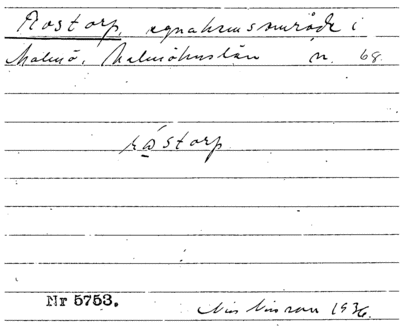 Rostorp, egnahemsområde i
Malmö, Malmöhus län n. 68.
råstorp
Nr 5753.
Nils Nilsson 1936.